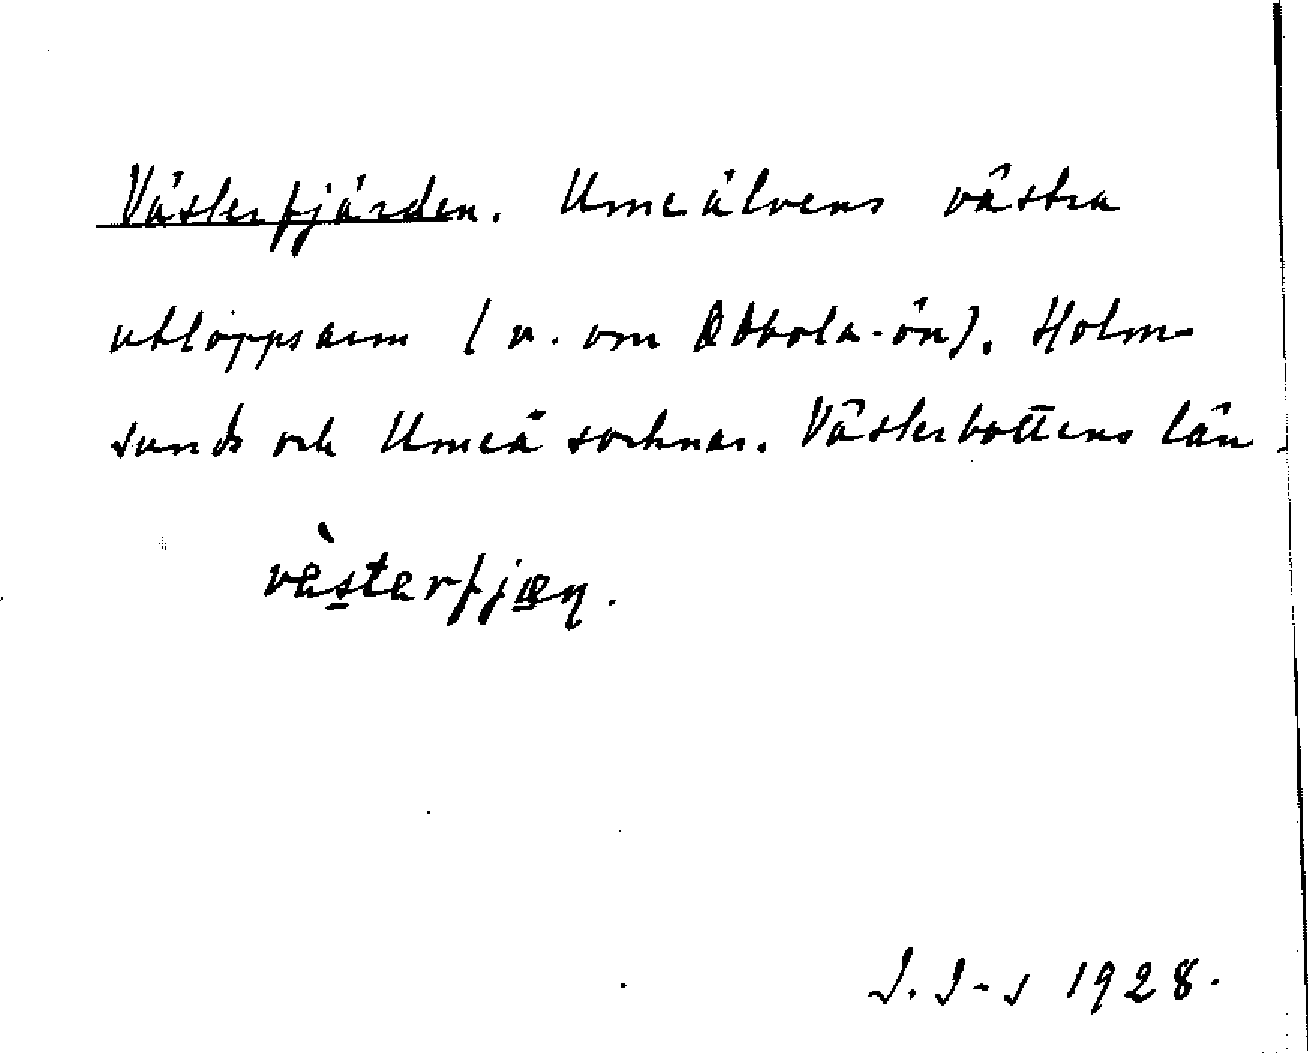 Västerfjärden. Umeälvens västra
utloppsarm (v. om Obbola-ön). Holm-
sunds och Umeå socknar. Västerbottens län.
vèsterfjæṇ.
J. J-s 1928.